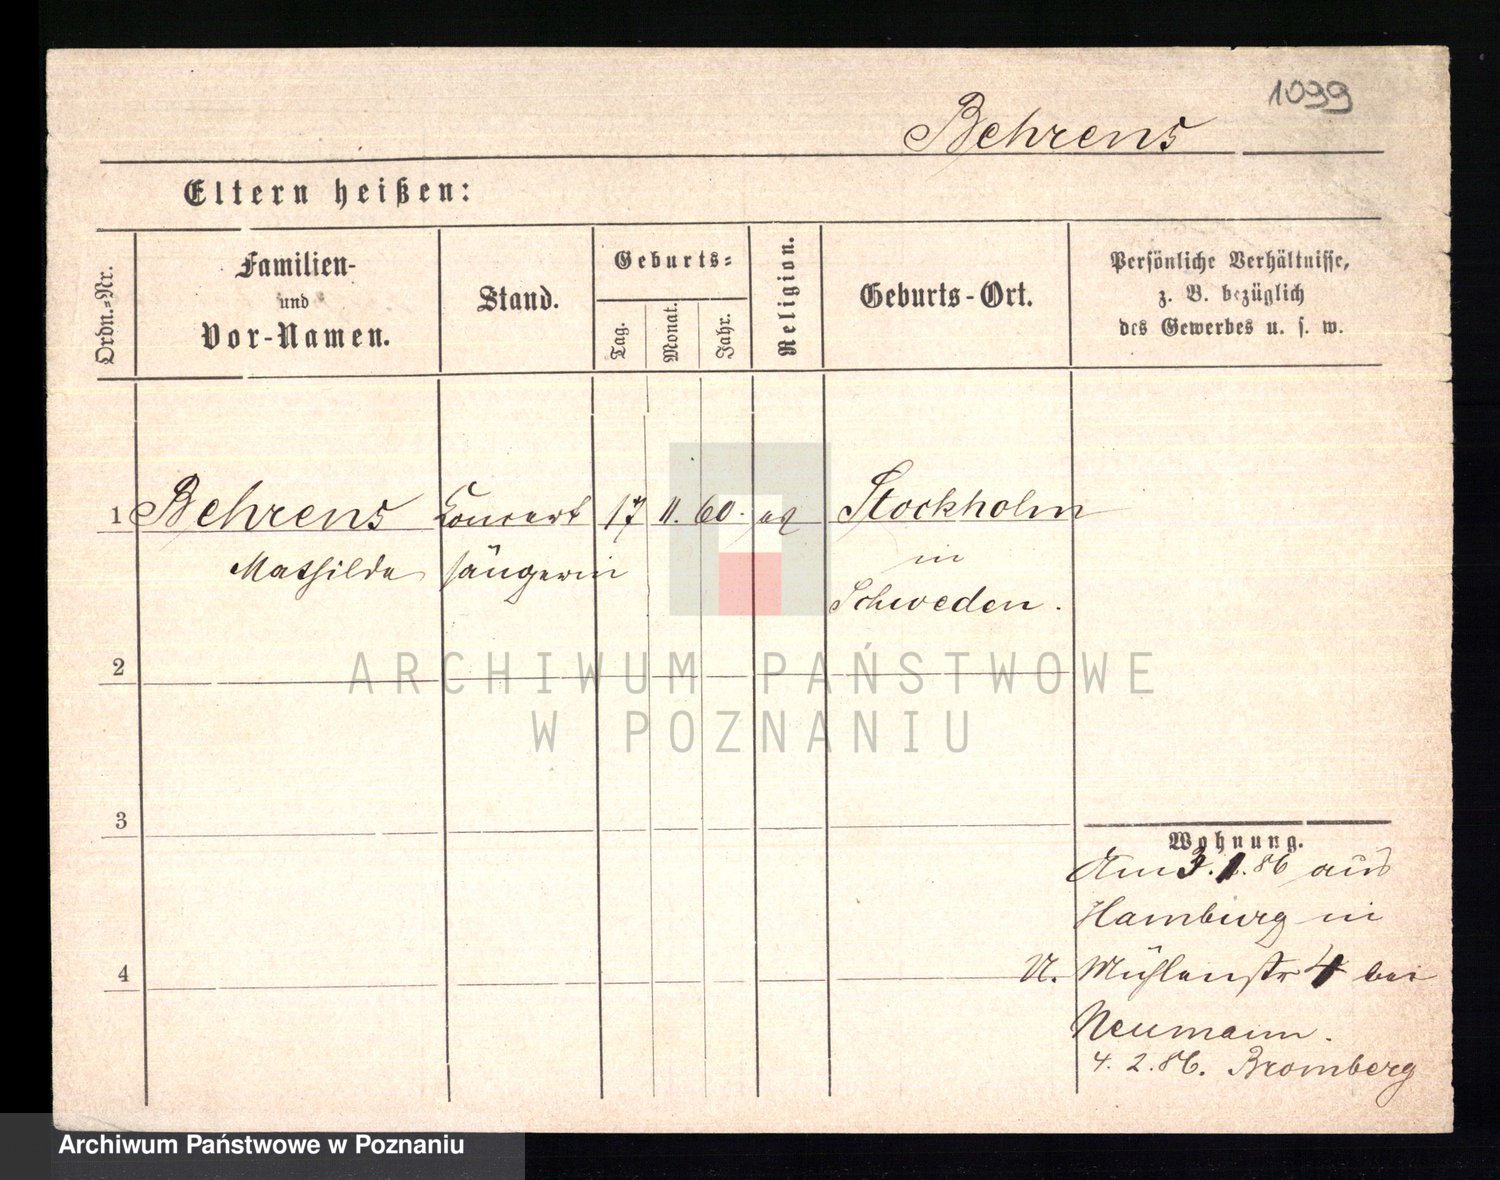 1099
Behrens
Eltern heißen:
Ordn.-Nr.
Familien-
und
Vor-Namen.
Stand.
Geburts-
Tag.
Monat.
Jahr.
Religion.
Geburts-Ort.
Persönliche Verhältnisse,
z. B. bezüglich
des Gewerbes u. s. w.
1 Behrens Concert 17 11. 60. Stockholm
Mathilde sängerin in
Schweden.
ARCHIWUM PAŃSTWOWE
W POZNANIU
2
3
4
Wohnung.
Am 3.1.86 aus
Hamburg in
N. Mühlenstr 4 bei
Neumann.
4. 2. 86. Bromberg
Archiwum Państwowe w Poznaniu